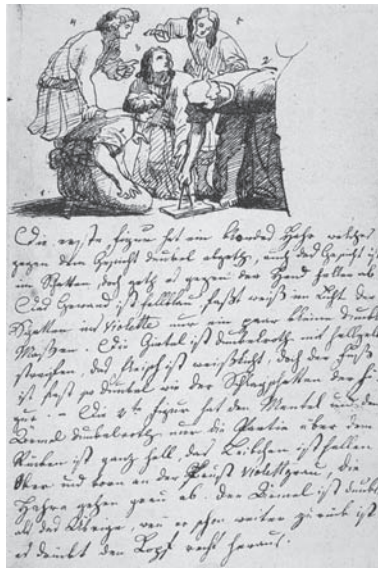 4 5
3 2
1
Die erste Figur hat ein blondes Haar welches
gegen dem Gesicht dunkel absetzt, auch das Gesicht ist
im Schatten, doch setzt es gegen der Hand heller ab
Das Gewand ist hellblau fast weiß im Licht der
Schatten ins Violette nur ein paar kleine dunkle
Maßen. Die Gürtel ist dunkelroth mit hellgelb
streifen, das Fleisch ist weißlicht, doch der Fuß
ist fast so dunkel wie der Schlagschatten der Fi-
gur. – Die 2te Figur hat den Mantel und den
Ermel dunkelroth nur die Partie über dem
Rücken ist ganz hell, das Leibchen ist hellen
Oker und vorn an der Brust Violettgrau, die
Haare gehen grau ab. Der Ermel ist dunkler
als das Übrige, wenn er schon weiter zurück ist
es drückt den Kopf recht heraus.